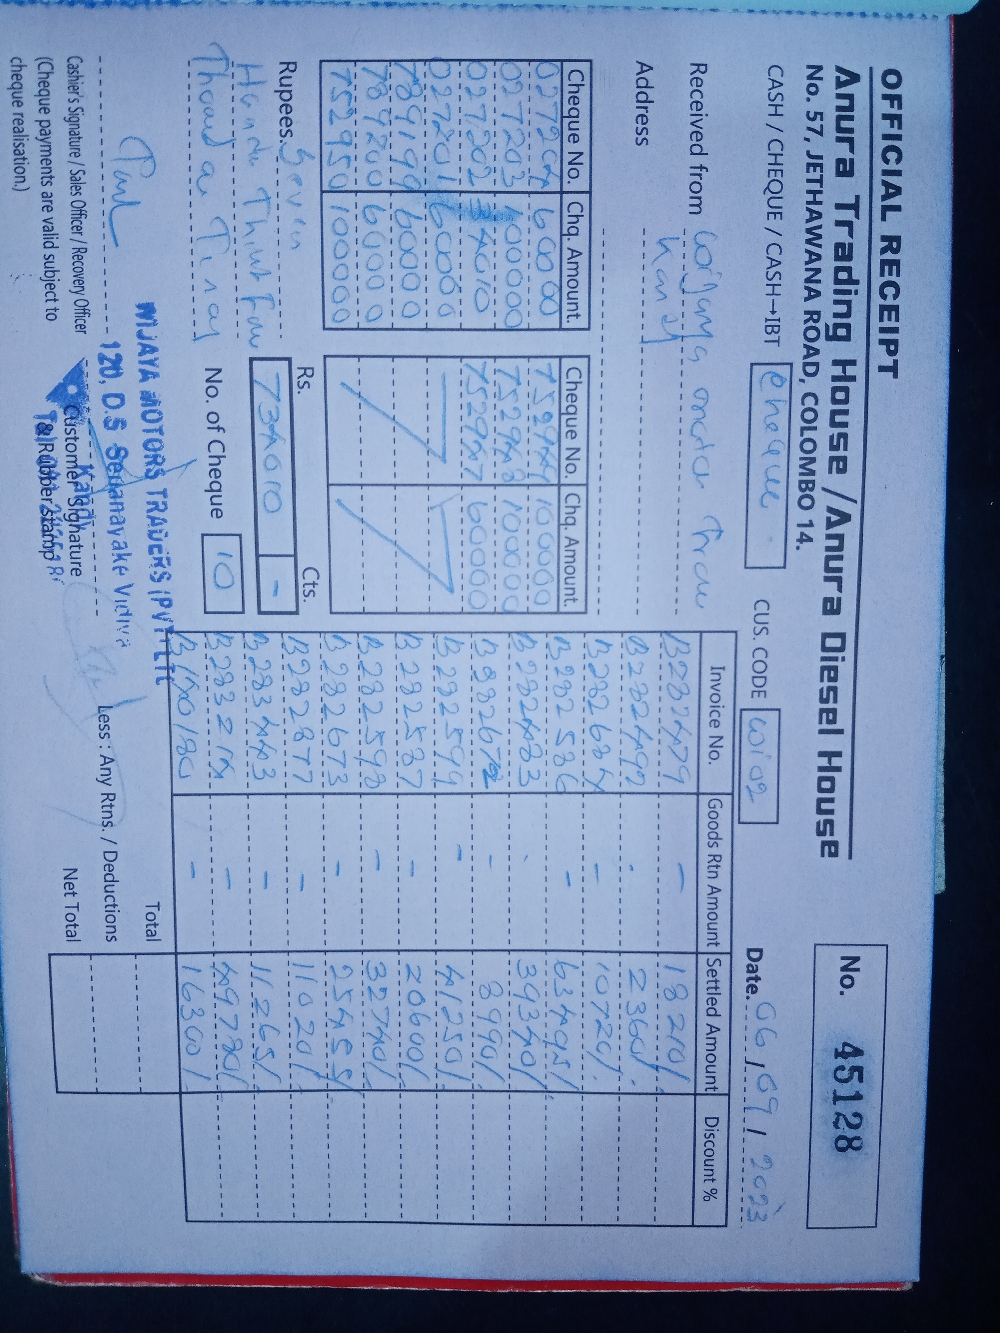 OFFICIAL RECEIPT
Anura Trading House / Anura Diesel House
No. 57, JETHAWANA ROAD, COLOMBO 14.
No. 45128
CASH / CHEQUE / CASH→IBT cheque
CUS. CODE
Date. 06 / 09 / 2023
Received from
Address
Cheque No. Chq. Amount. Cheque No. Chq. Amount.
027204 60000
027203 100000 100000
027202 34010 60000
027201 60000
789199 60000
789200 60000
752950 100000
Rupees. Seven
Rs. 734010 Cts. -
No. of Cheque 10
Invoice No. Goods Rtn Amount Settled Amount Discount %
B282479 - 18210/
B282492 - 2360/
B282684 - 10720/.
B282586 - 63495/
B282483 - 39340/
- 8990/
B282599 - 41250/
B282587 - 20600/
B282598 - 32740/
B282673 -
B282877 - 11020/
B283443 - 11265/
- 49780/
- 16300/
Total
Less : Any Rtns. / Deductions
Net Total
Cashier's Signature / Sales Officer / Recovery Officer
(Cheque payments are valid subject to
cheque realisation.)
Customer Signature
& Rubber stamp
WIJAYA MOTORS TRADERS (PVT) LTD
120, D.S Senanayake Vidiya